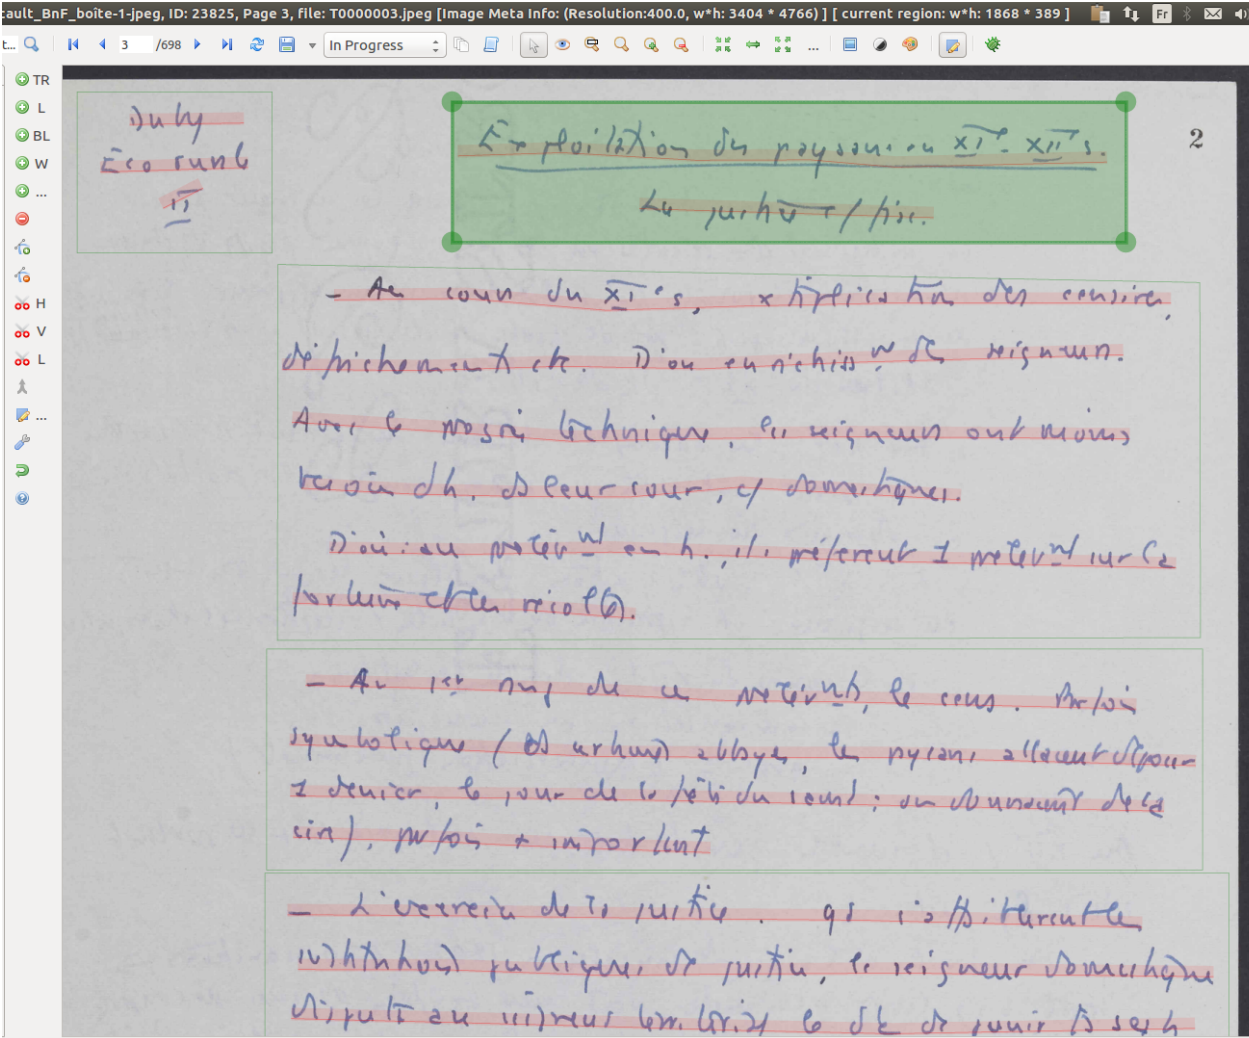 cault_BnF_boîte-1-jpeg, ID: 23825, Page 3, file: T0000003.jpeg [Image Meta Info: (Resolution:400.0, w*h: 3404 * 4766) ] [ current region: w*h: 1868 * 389 ] Fr
t... 3 /698 In Progress ...
TR
L
BL
W
...
H
V
L
...
Duby
Eco rurale
II
2
Exploitation du paysan au XIe - XIIe s.
La justice / fisc.
- Au cours du XIe s, x tiplication des censives,
défrichements etc. D'où enrichisst des seigneurs.
Avec le progrès technique, les seigneurs ont moins
besoin d'h. ds leur cour, c/ domestiques.
D'où : au prélèvt en h., ils préfèrent 1 prélèvt sur la
fortune et les récoltes.
- Au 1er rang de ces prélèvts, le cens. Parfois
symbolique (ds certaines abbayes, les paysans allaient déposer
1 denier, le jour de la fête du saint ; ou donnaient de la
cire), parfois + important
- L'exercice de la justice. qd s'effritèrent les
institutions publiques de justice, le seigneur domestique
disputa au seigneur territorial le dt de punir ts ses h